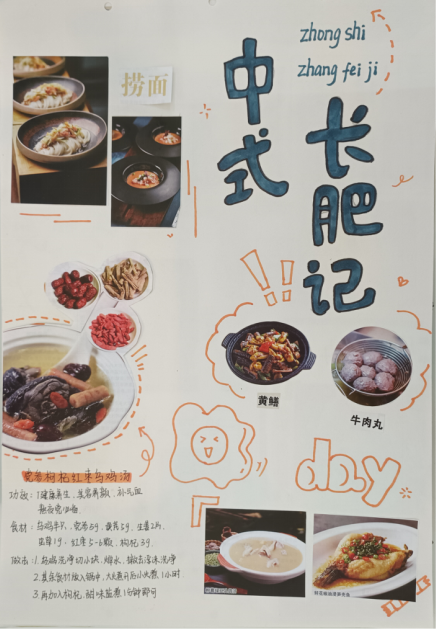 zhong shi
zhang fei ji
中式
长肥记
捞面
黄鳝
牛肉丸
day
党参枸杞红枣乌鸡汤
功效：1.健康养生、美容养颜、补气血
食材：乌鸡半只、党参5g、黄芪5g、生姜2片
红枣5-6颗、枸杞3g
做法：1.乌鸡洗净切小块、焯水、撇去浮沫洗净
2.其余食材放入锅中，大火煮开后小火煮1小时
3.再加入枸杞、调味盐煮1分钟即可